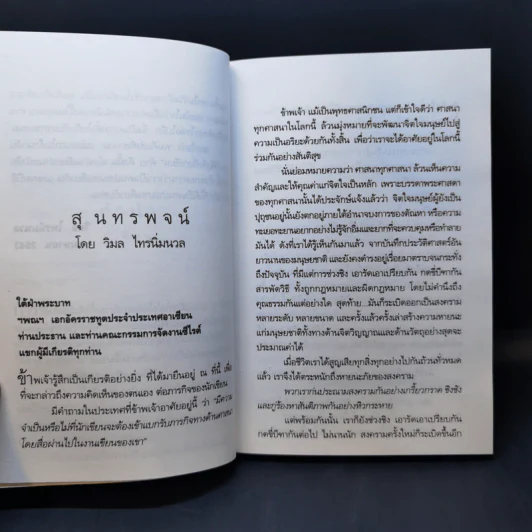 สุนทรพจน์
โดย วิมล ไทรนิ่มนวล
ใต้ฝ่าพระบาท
ฯพณฯ เอกอัครราชทูตประจำประเทศอาเซียน
ท่านประธาน และท่านคณะกรรมการจัดงานซีไรต์
แขกผู้มีเกียรติทุกท่าน
ข้าพเจ้ารู้สึกเป็นเกียรติอย่างยิ่ง ที่ได้มายืนอยู่ ณ ที่นี้ เพื่อ
ที่จะกล่าวถึงความคิดเห็นของตนเอง ต่อภารกิจของนักเขียน
มีคำถามในประเทศที่ข้าพเจ้าอาศัยอยู่นี้ ว่า "มีความ
จำเป็นหรือไม่ที่นักเขียนจะต้องเข้าแบกรับภารกิจทางด้านศาสนา
โดยสื่อผ่านไปในงานเขียนของเขา"
ข้าพเจ้า แม้เป็นพุทธศาสนิกชน แต่ก็เข้าใจดีว่า ศาสนา
ทุกศาสนาในโลกนี้ ล้วนมุ่งหมายที่จะพัฒนาจิตใจมนุษย์ไปสู่
ความเป็นอริยะด้วยกันทั้งสิ้น เพื่อว่าเราจะได้อาศัยอยู่ในโลกนี้
ร่วมกันอย่างสันติสุข
นั่นย่อมหมายความว่า ศาสนาทุกศาสนา ล้วนเห็นความ
สำคัญและให้คุณค่าแก่จิตใจเป็นหลัก เพราะบรรดาพระศาสดา
ของทุกศาสนานั้นได้ประจักษ์แจ้งแล้วว่า จิตใจมนุษย์ผู้ยังเป็น
ปุถุชนอยู่นั้นยังตกอยู่ภายใต้อำนาจบงการของตัณหา หรือความ
ทะเยอทะยานอยากอย่างไม่รู้จักอิ่มและยากที่จะควบคุมหรือทำลาย
มันได้ ดังที่เราได้รู้เห็นกันมาแล้ว จากบันทึกประวัติศาสตร์อัน
ยาวนานของมนุษยชาติ และยังคงดำรงอยู่เรื่อยมาตราบจนกระทั่ง
ถึงปัจจุบัน ที่มีแต่การช่วงชิง เอารัดเอาเปรียบกัน กดขี่บีฑากัน
สารพัดวิธี ทั้งถูกกฎหมายและผิดกฎหมาย โดยไม่คำนึงถึง
คุณธรรมกันแต่อย่างใด สุดท้าย...มันก็ระเบิดออกเป็นสงคราม
หลายระดับ หลายขนาด และครั้งแล้วครั้งเล่าสร้างความหายนะ
แก่มนุษยชาติทั้งทางด้านจิตวิญญาณและด้านวัตถุอย่างสุดจะ
ประมาณค่าได้
เมื่อชีวิตเราได้สูญเสียทุกสิ่งทุกอย่างไปกันถ้วนทั่วหมด
แล้ว เราจึงได้ตระหนักถึงหายนะภัยของสงคราม
พวกเราก่นประณามสงครามกันอย่างเกรี้ยวกราด ชิงชัง
และกู่ร้องหาสันติภาพกันอย่างหิวกระหาย
แต่พร้อมกันนั้น เราก็ยังช่วงชิง เอารัดเอาเปรียบกัน
กดขี่บีฑากันต่อไป ไม่นานนัก สงครามครั้งใหม่ก็ระเบิดขึ้นอีก